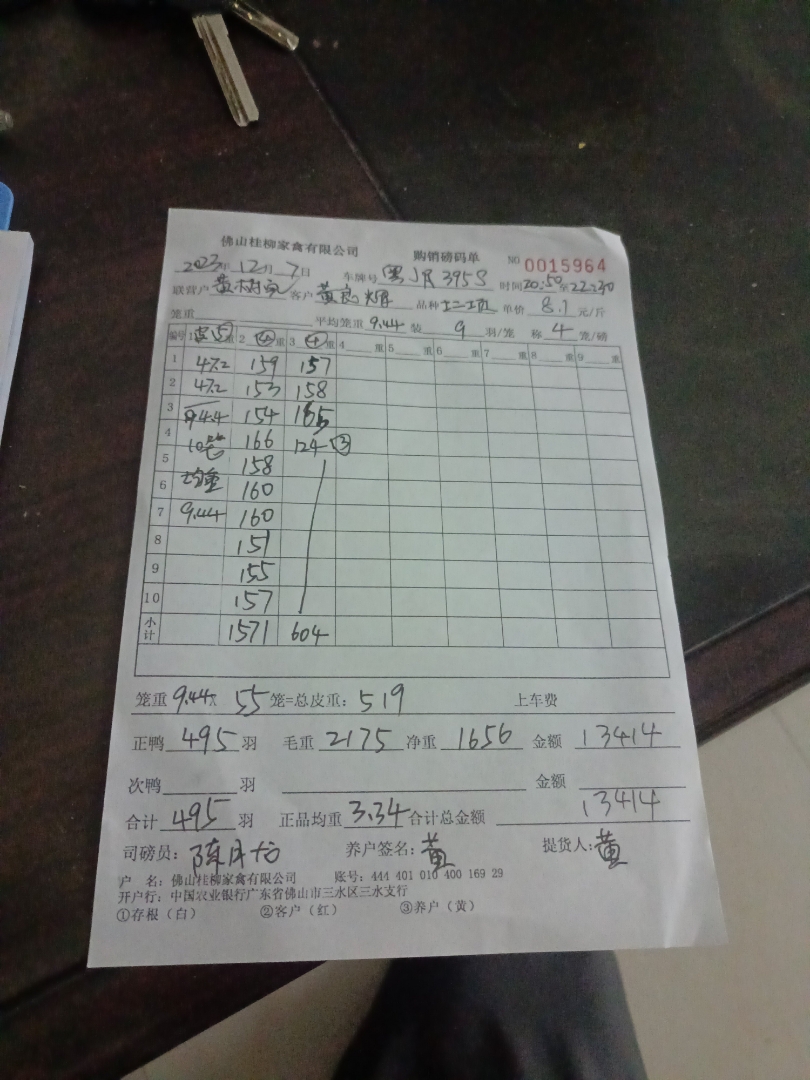 佛山桂柳家禽有限公司 购销磅码单 NO 0015964
2023年12月7日 车牌号 粤JR395S 时间20:50至22:30
联营户 黄树 客户 黄 品种 单价 8.1 元/斤
笼重 平均笼重 9.44 装 9 羽/笼 称 4 笼/磅
编号 1 皮⑤重 2 ④重 3 ④重 4 重 5 重 6 重 7 重 8 重 9 重
1 47.2 159 157
2 47.2 153 158
3 94.4 154 165
4 10笔 166 124 ③
5 158
6 均重 160
7 9.44 160
8 151
9 155
10 157
小计 1571 604
笼重 9.44 x 55 笼=总皮重: 519 上车费
正鸭 495 羽 毛重 2175 净重 1656 金额 13414
次鸭 羽 金额
合计 495 羽 正品均重 3.34 合计总金额 13414
司磅员: 陈月 养户签名: 黄 提货人: 黄
户 名: 佛山桂柳家禽有限公司 账号: 444 401 010 400 169 29
开户行: 中国农业银行广东省佛山市三水区三水支行
①存根（白） ②客户（红） ③养户（黄）